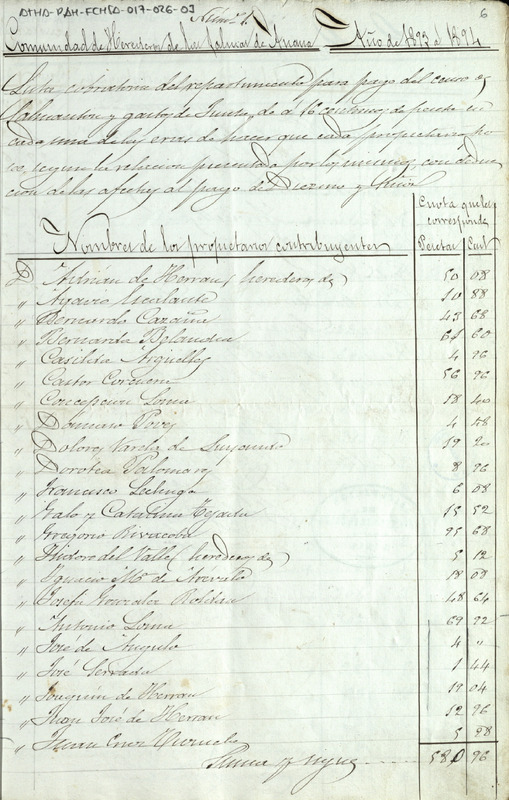 ATHA-DAH-FCHTD-017-026-03
Núm. 1.
6
Comunidad de Herederos de las Salinas de Añana Año de 1893 á 1894
Lista cobratoria del repartimiento para pago del censo de
y gastos de Junta, de á 16 centimos de peseta en
cada una de las eras de hacer que cada propietario po
see, segun la relacion presentada por los mismos, con deduc
cion de las afectas al pago de Diezmo y
Cuota que les
corresponde
Nombres de los propietarios contribuyentes Pesetas Cent
D. Adrian de Herran (herederos de) 50 08
" 10 88
" Bernardo Cazaña 43 68
" Bernarda Belandia 61 60
" Casilda Arguelles 4 96
" Castor Corcuera 56 96
" Concepcion Loma 18 40
" Dámaso Poves 4 48
" Dolores Varela de 19 20
" Dorotea Palomares 8 96
" Francisco 6 08
" Galo y Catalina Tejada 15 52
" Gregorio Rivacoba 95 68
" Isidoro del Valle (herederos de) 5 12
" Ignacio Mª de Arévalo 18 08
" Josefa Gonzalez Roldan 48 64
" Antonio Loma 69 92
" José de Angulo 4 "
" José Serrada 1 44
" Joaquin de Herran 19 04
" Juan José de Herran 12 96
" Juan Cruz 5 28
Suma y sigue 580 96